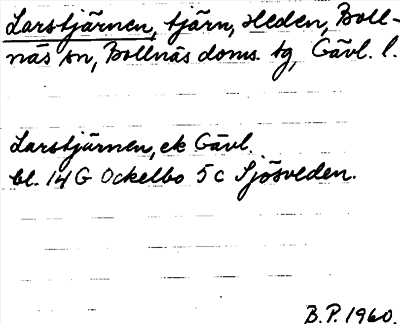 Larstjärnen, tjärn, Heden, Boll-
näs sn, Bollnäs doms. tg, Gävl. l.
Larstjärnen, ek Gävl.
bl. 14 G Ockelbo 5 c Sjösveden.
B.P. 1960.